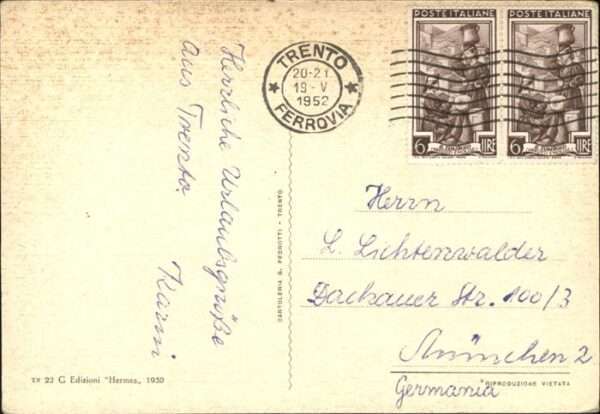 Herrliche Urlaubsgrüße
aus Trento
Karin
TRENTO
20-21
19-V
1952
FERROVIA
POSTE ITALIANE
POSTE ITALIANE
6 LIRE
6 LIRE
CARTOLERIA G. PEDROTTI - TRENTO
Herrn
L. Lichtenwalder
Dachauer Str. 100/3
München 2
Germania
22 C Edizioni "Hermes" 1950
RIPRODUZIONE VIETATA